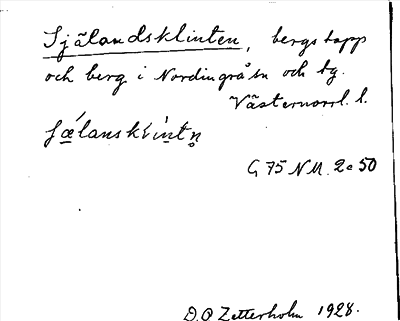 Själandsklinten, bergstopp
och berg i Nordingrå sn och tg.
Västernorrl. l.
G 75 NM. 2c 50
D. O Zetterholm 1928.